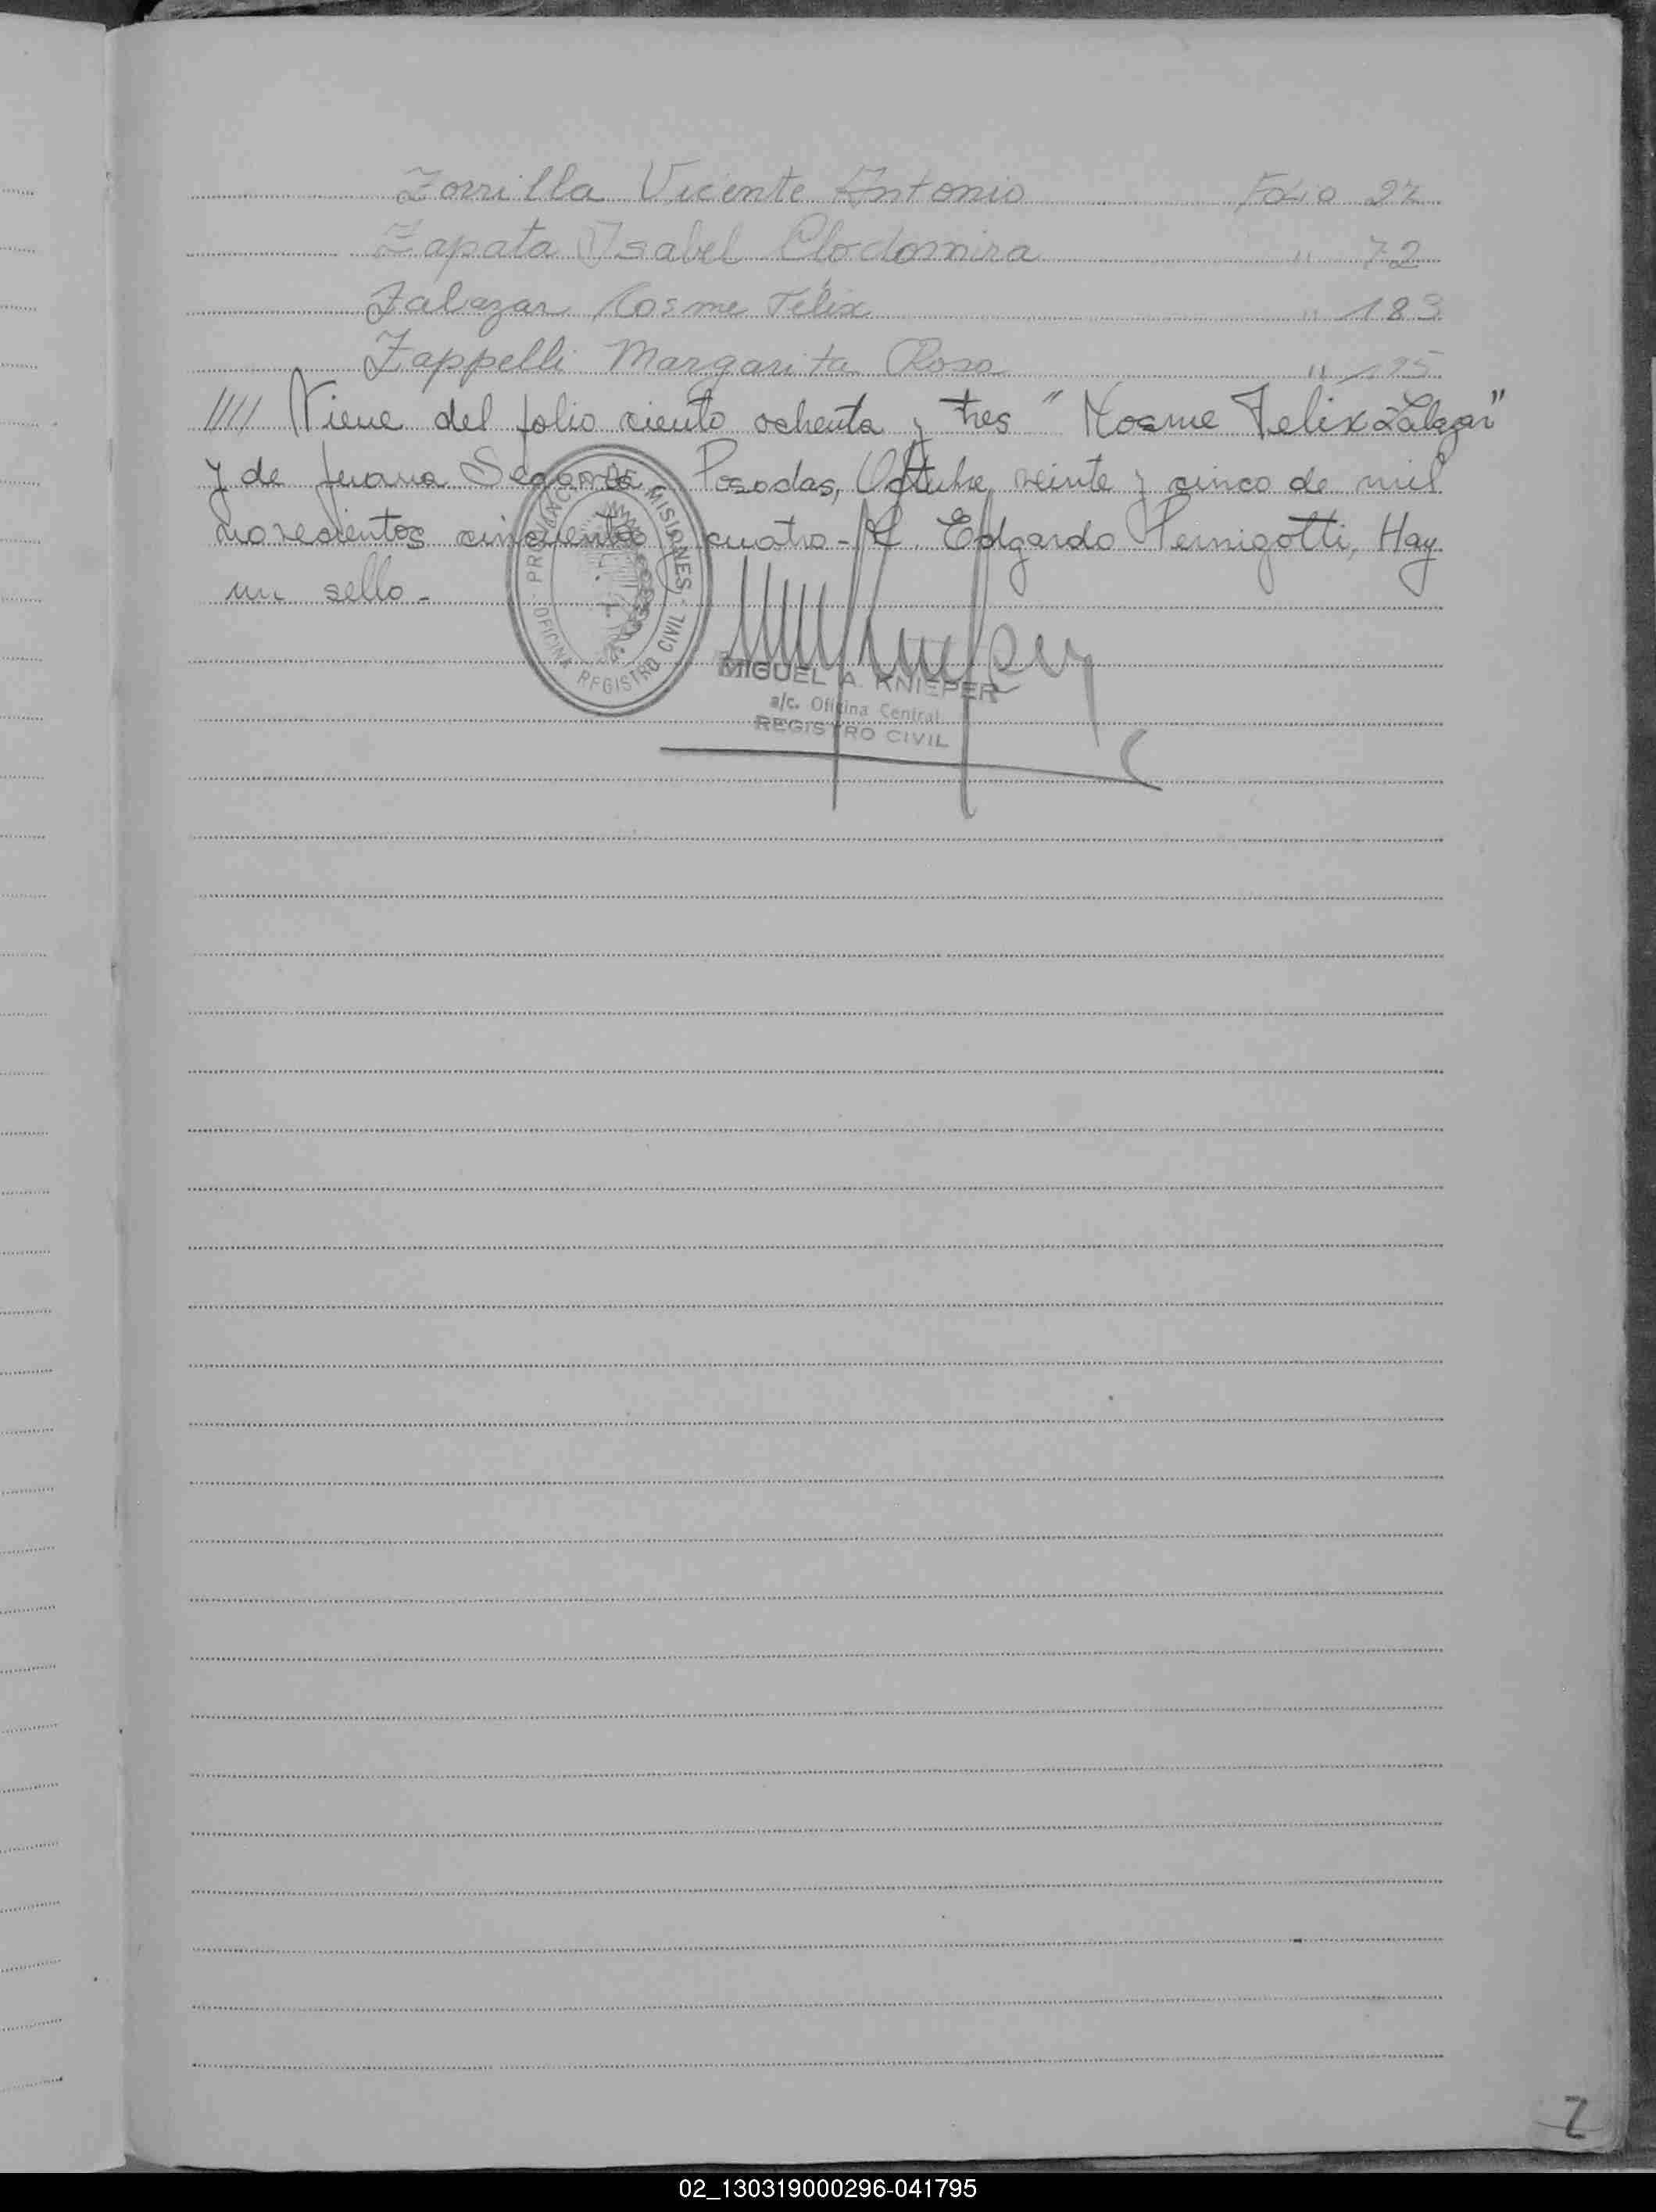 Zorrilla Vicente Antonio Folio 27
Zapata Isabel Clodomira " 72
Zalazar Cosme Félix " 183
Zappelli Margarita Rosa " 195
//// Viene del folio ciento ochenta y tres " Cosme Felix Zalazar"
y de Juana Segovia Posadas, Octubre veinte y cinco de mil
novecientos cincuenta y cuatro - Edgardo Pernigotti, Hay
un sello -
PROVINCIA DE MISIONES
OFICINA REGISTRO CIVIL
MIGUEL A. KNIEPER
a/c. Oficina Central
REGISTRO CIVIL
Z
02_130319000296-041795